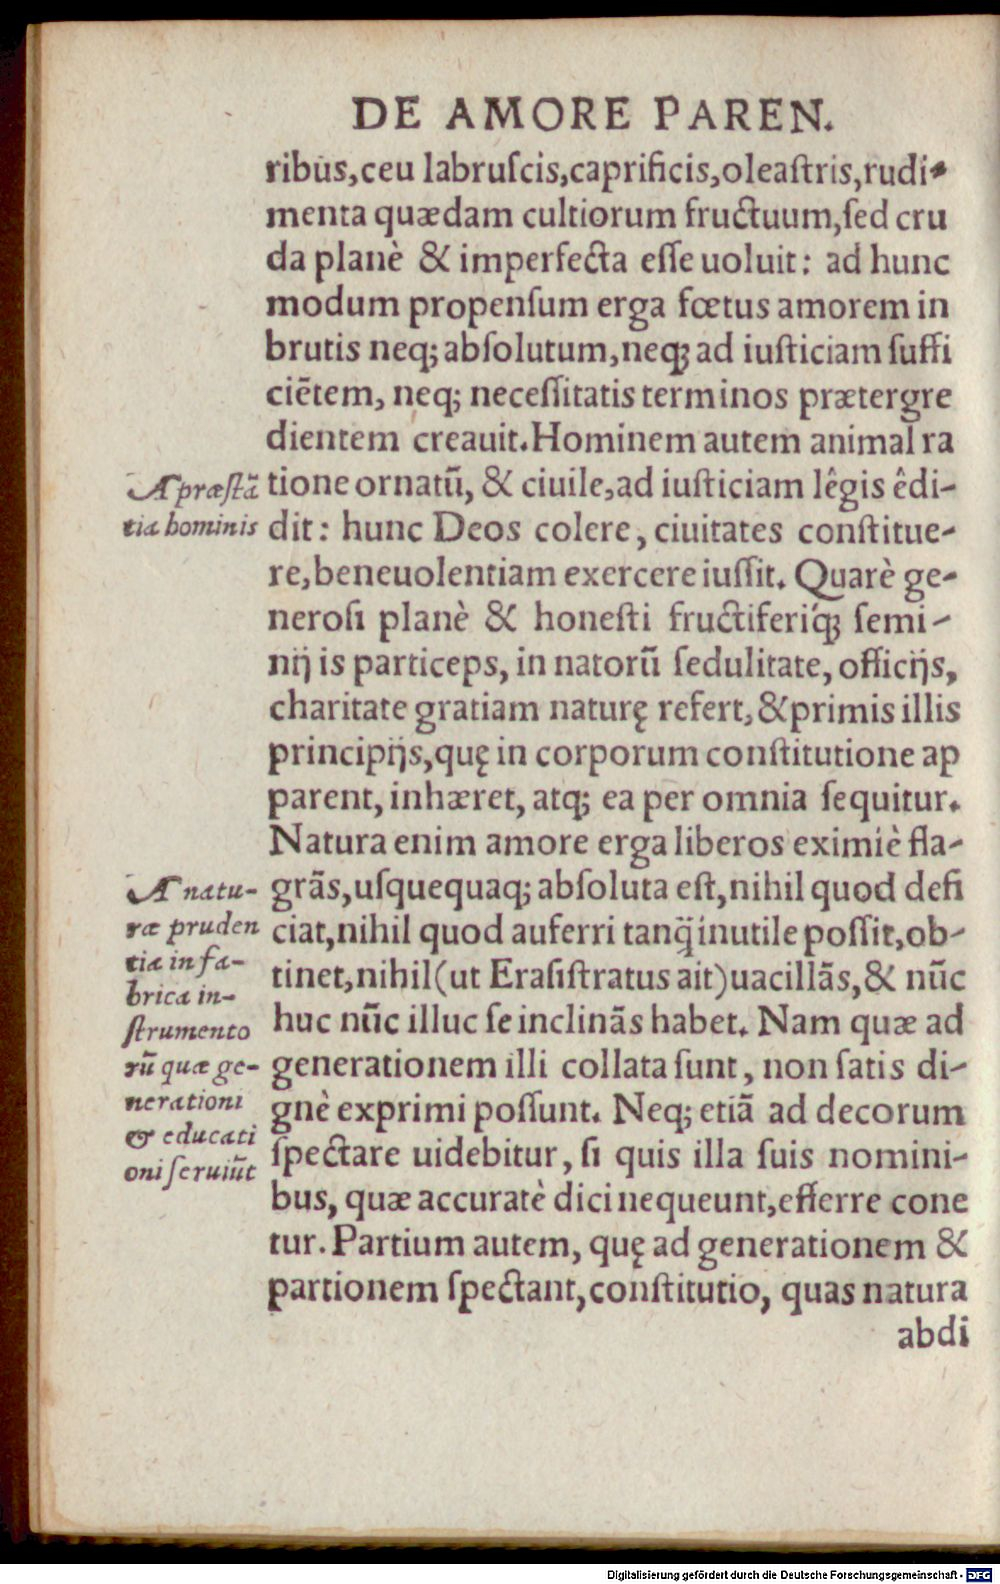 DE AMORE PAREN.
ribus, ceu labruſcis, caprificis, oleaſtris, rudi-
menta quædam cultiorum fructuum, ſed cru
da planè & imperfecta eſſe uoluit: ad hunc
modum propenſum erga fœtus amorem in
brutis neq; abſolutum, neq; ad iuſticiam ſuffi
ciẽtem, neq; neceſſitatis terminos prætergre
dientem creauit. Hominem autem animal ra
tione ornatũ, & ciuile, ad iuſticiam lêgis êdi-
dit: hunc Deos colere, ciuitates conſtitue-
re, beneuolentiam exercere iuſſit. Quarè ge-
neroſi planè & honeſti fructiferiq́; ſemi-
nij is particeps, in natorũ ſedulitate, officijs,
charitate gratiam naturę refert, & primis illis
principijs, quę in corporum conſtitutione ap
parent, inhæret, atq; ea per omnia ſequitur.
Natura enim amore erga liberos eximiè fla-
grãs, uſquequaq; abſoluta eſt, nihil quod defi
ciat, nihil quod auferri tanq̃ inutile poſſit, ob-
tinet, nihil (ut Eraſiſtratus ait) uacillãs, & nũc
huc nũc illuc ſe inclinãs habet. Nam quæ ad
generationem illi collata ſunt, non ſatis di-
gnè exprimi poſſunt. Neq; etiã ad decorum
ſpectare uidebitur, ſi quis illa ſuis nomini-
bus, quæ accuratè dici nequeunt, efferre cone
tur. Partium autem, quę ad generationem &
partionem ſpectant, conſtitutio, quas natura
abdi
A præſtã
tia hominis
A natu-
ræ pruden
tia in fa-
brica in-
ſtrumento
rũ quæ ge-
nerationi
& educati
oni ſeruiũt
Digitalisierung gefördert durch die Deutsche Forschungsgemeinschaft - DFG